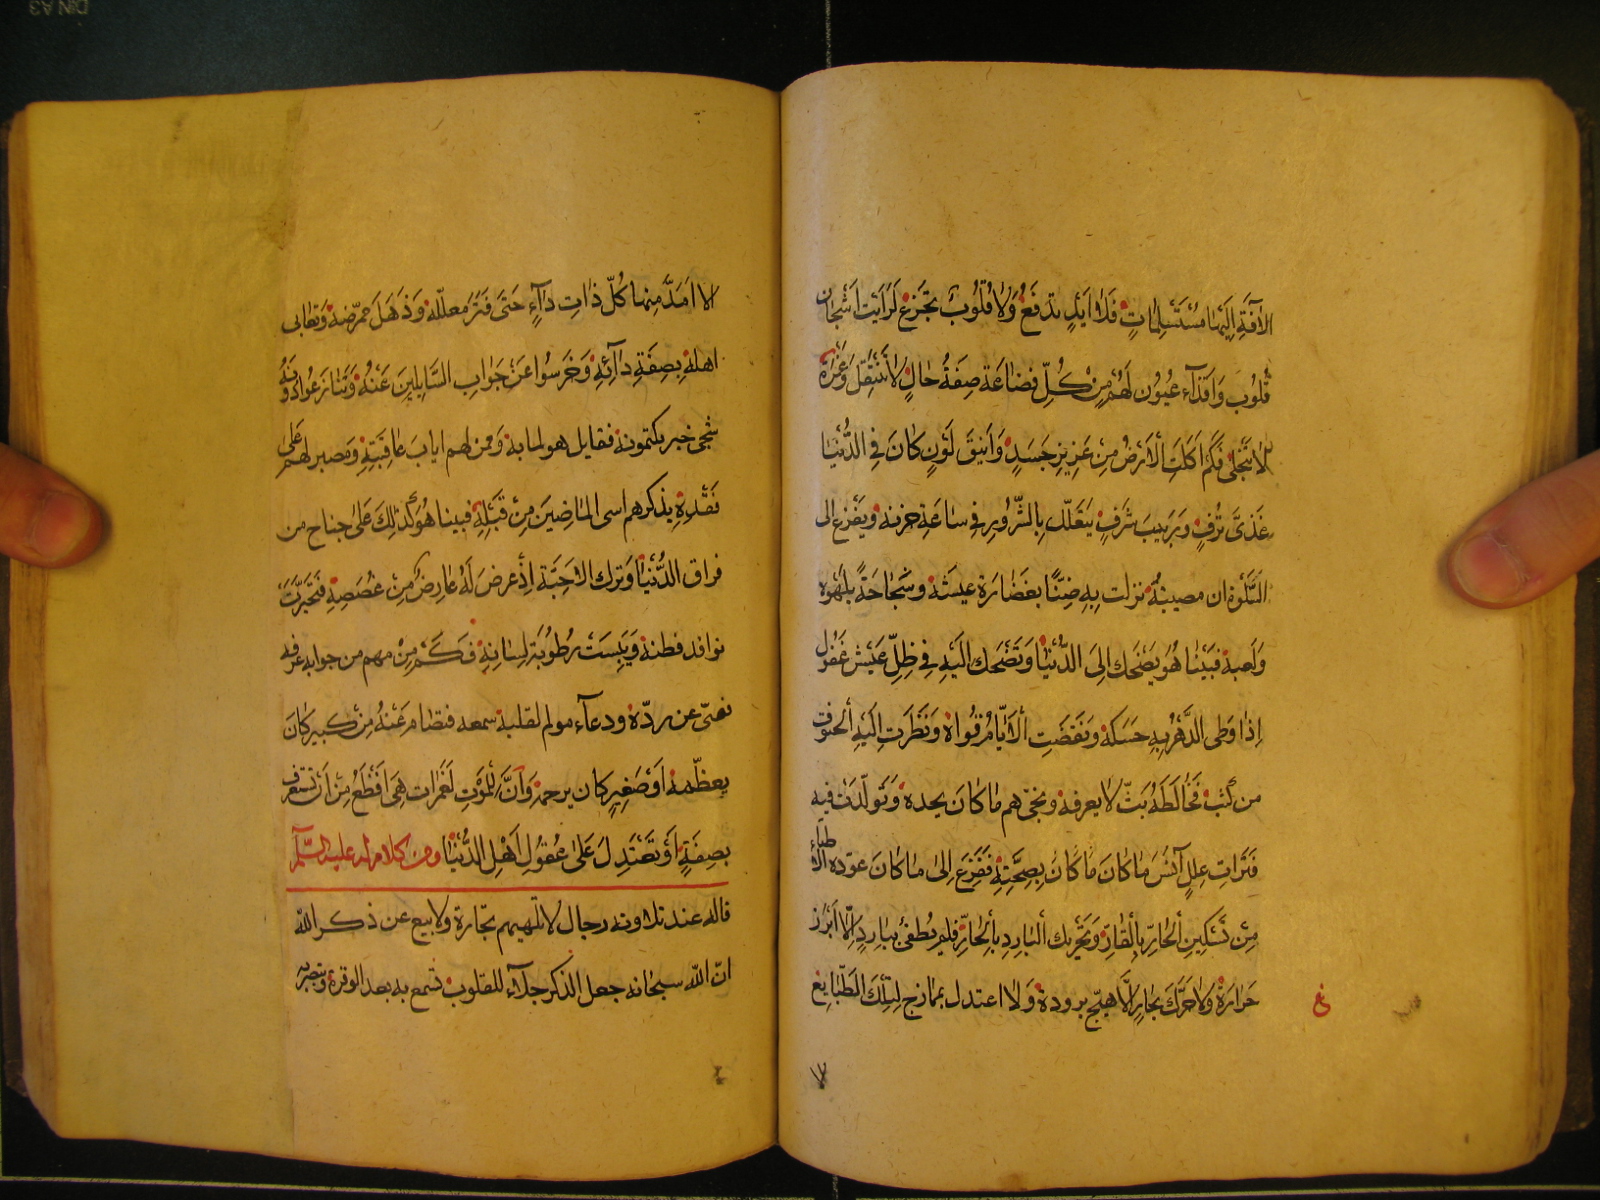 الآفَةِ اِلَيْهَا مُسْتَسْلِمَاتٍ فَلَا اَيْدٍ تَدْفَعُ وَلَا قُلُوبٌ تَجْزَعُ لَرَاَيْتَ اَشْجَانَ
قُلُوبٍ وَاَقْذَآء عُيُونٍ لَهُمْ مِنْ كُلِّ فَضَاعَة صِفَةُ حَالٍ لَا تَنْتَقِلُ وَغَمْرَةٌ
لَا تَنْجَلِي فَكَمْ اَكَلَتِ الْاَرْضُ مِنْ عَزِيزِ جَسَدٍ وَاَنِيقِ لَوْنٍ كَانَ فِي الدُّنْيَا
غَذِيَّ تَرَفٍ وَرَبِيبَ شَرَفٍ يَتَعَلَّلُ بِالسُّرُورِ فِي سَاعَةِ حزنه وَيَفْزَعُ الى
السَّلْوَةِ ان مصيبةٌ نزلت بِهِ ضِنًّا بغَضَارَةِ عيشه وشَحَاحَةً بلَهْوِه
وَلَعبه فَبَيْنَا هُوَ يَضْحَك اِلَى الدُّنْيَا وَتَضْحَك اِلَيْهِ فِي ظِلِّ عَيْشٍ غَفُولٍ
اِذَا وَطِى الدَّهْرُ بِهِ حَسَكَهُ وَنَقَضَتِ الْاَيَّامُ قُوَاهُ وَنَظَرَتْ اِلَيْهِ الْحُتُوفُ
من كَثَبٍ فَخَالَطَهُ بَثّ لا يعرفه ونجىّ هم مَا كَانَ يجده وَتَوَلَّدَتْ فِيهِ
فَتَرَاتُ عِلَلٍ آنَسَ مَا كَانَ مَا كَانَ بِصِحَّتِهِ فَفَزِعَ اِلىٰ مَا كَانَ عوّده الاطبّاء
مِنْ تَسْكِينِ الْحَارِّ بِالْقَارِّ وَتَحْرِيك الْبَارِدِ بِالْحَارِّ فلم يُطْفئ بِبَارِدٍ اِلَّا اثَوَّرَ
حَرَارَةً وَلَا حَرَّكَ بحَارٍ اِلَّا هيّج برودة وَلَا اعتدل بممازج لِتِلْكَ الطَّبَايِعِ
لا
اِلَّا اَمَدَّ مِنها كُلّ ذَاتِ دَآءٍ حَتَّى فَتَرَ مُعلّله وَذَهَلَ ممرّضه وَتعَايى
اهله بِصِفَةِ دَآئِهِ وَخَرِسُوا عَنْ جَوَابِ السَّايِلِينَ عَنْهُ وَتَنَازَعُوا دُونَهُ
شجى خبر يكتمونه فقايل هو لما به وَممنّ لهم اياب عَافِيَتِهِ وَمصبر لهم عَلَى
فَقْدِهِ يذكرهم اسى المَاضِينَ مِنْ قَبْلِهِ فبينا هُوَ كَذٰلِكَ عَلىٰ جناح من
فراق الدُّنْيَا وَترك الاحِبَّة اِذْ عرضَ لَهُ عَارِض مِنْ غُصَصِهِ فَتَحَيَّرَتْ
نوافذ فطنته وَيَبِسَتْ رُطُوبَة لِسَانِهِ فَكَمْ مِنْ مهم من جوابه عرفه
فعىّ عن ردّه ودعآء مولم لقلبه سمعه فتصَامّ عَنْهُ مِنْ كبير كَانَ
يعظّمه اَوْ صَغِيرٍ كان يرحمه وَاِنَّ لِلْمَوْتِ لَغَمَرَات هِيَ اَفْظَعُ مِنْ اَنْ تستغرق
بِصِفَةٍ اَوْ تَعْتَدِلَ عَلىٰ عُقُولِ اَهْلِ الدُّنْيَا ومن كلام له عليه السّلم
قاله عند تلاوته رجال لا تلهيهم تجارة ولا بيع عن ذكر الله
انّ الله سبحانه جعل الذكر جلآء للقلوب تسمع به بعد الوقرة وتبصر به